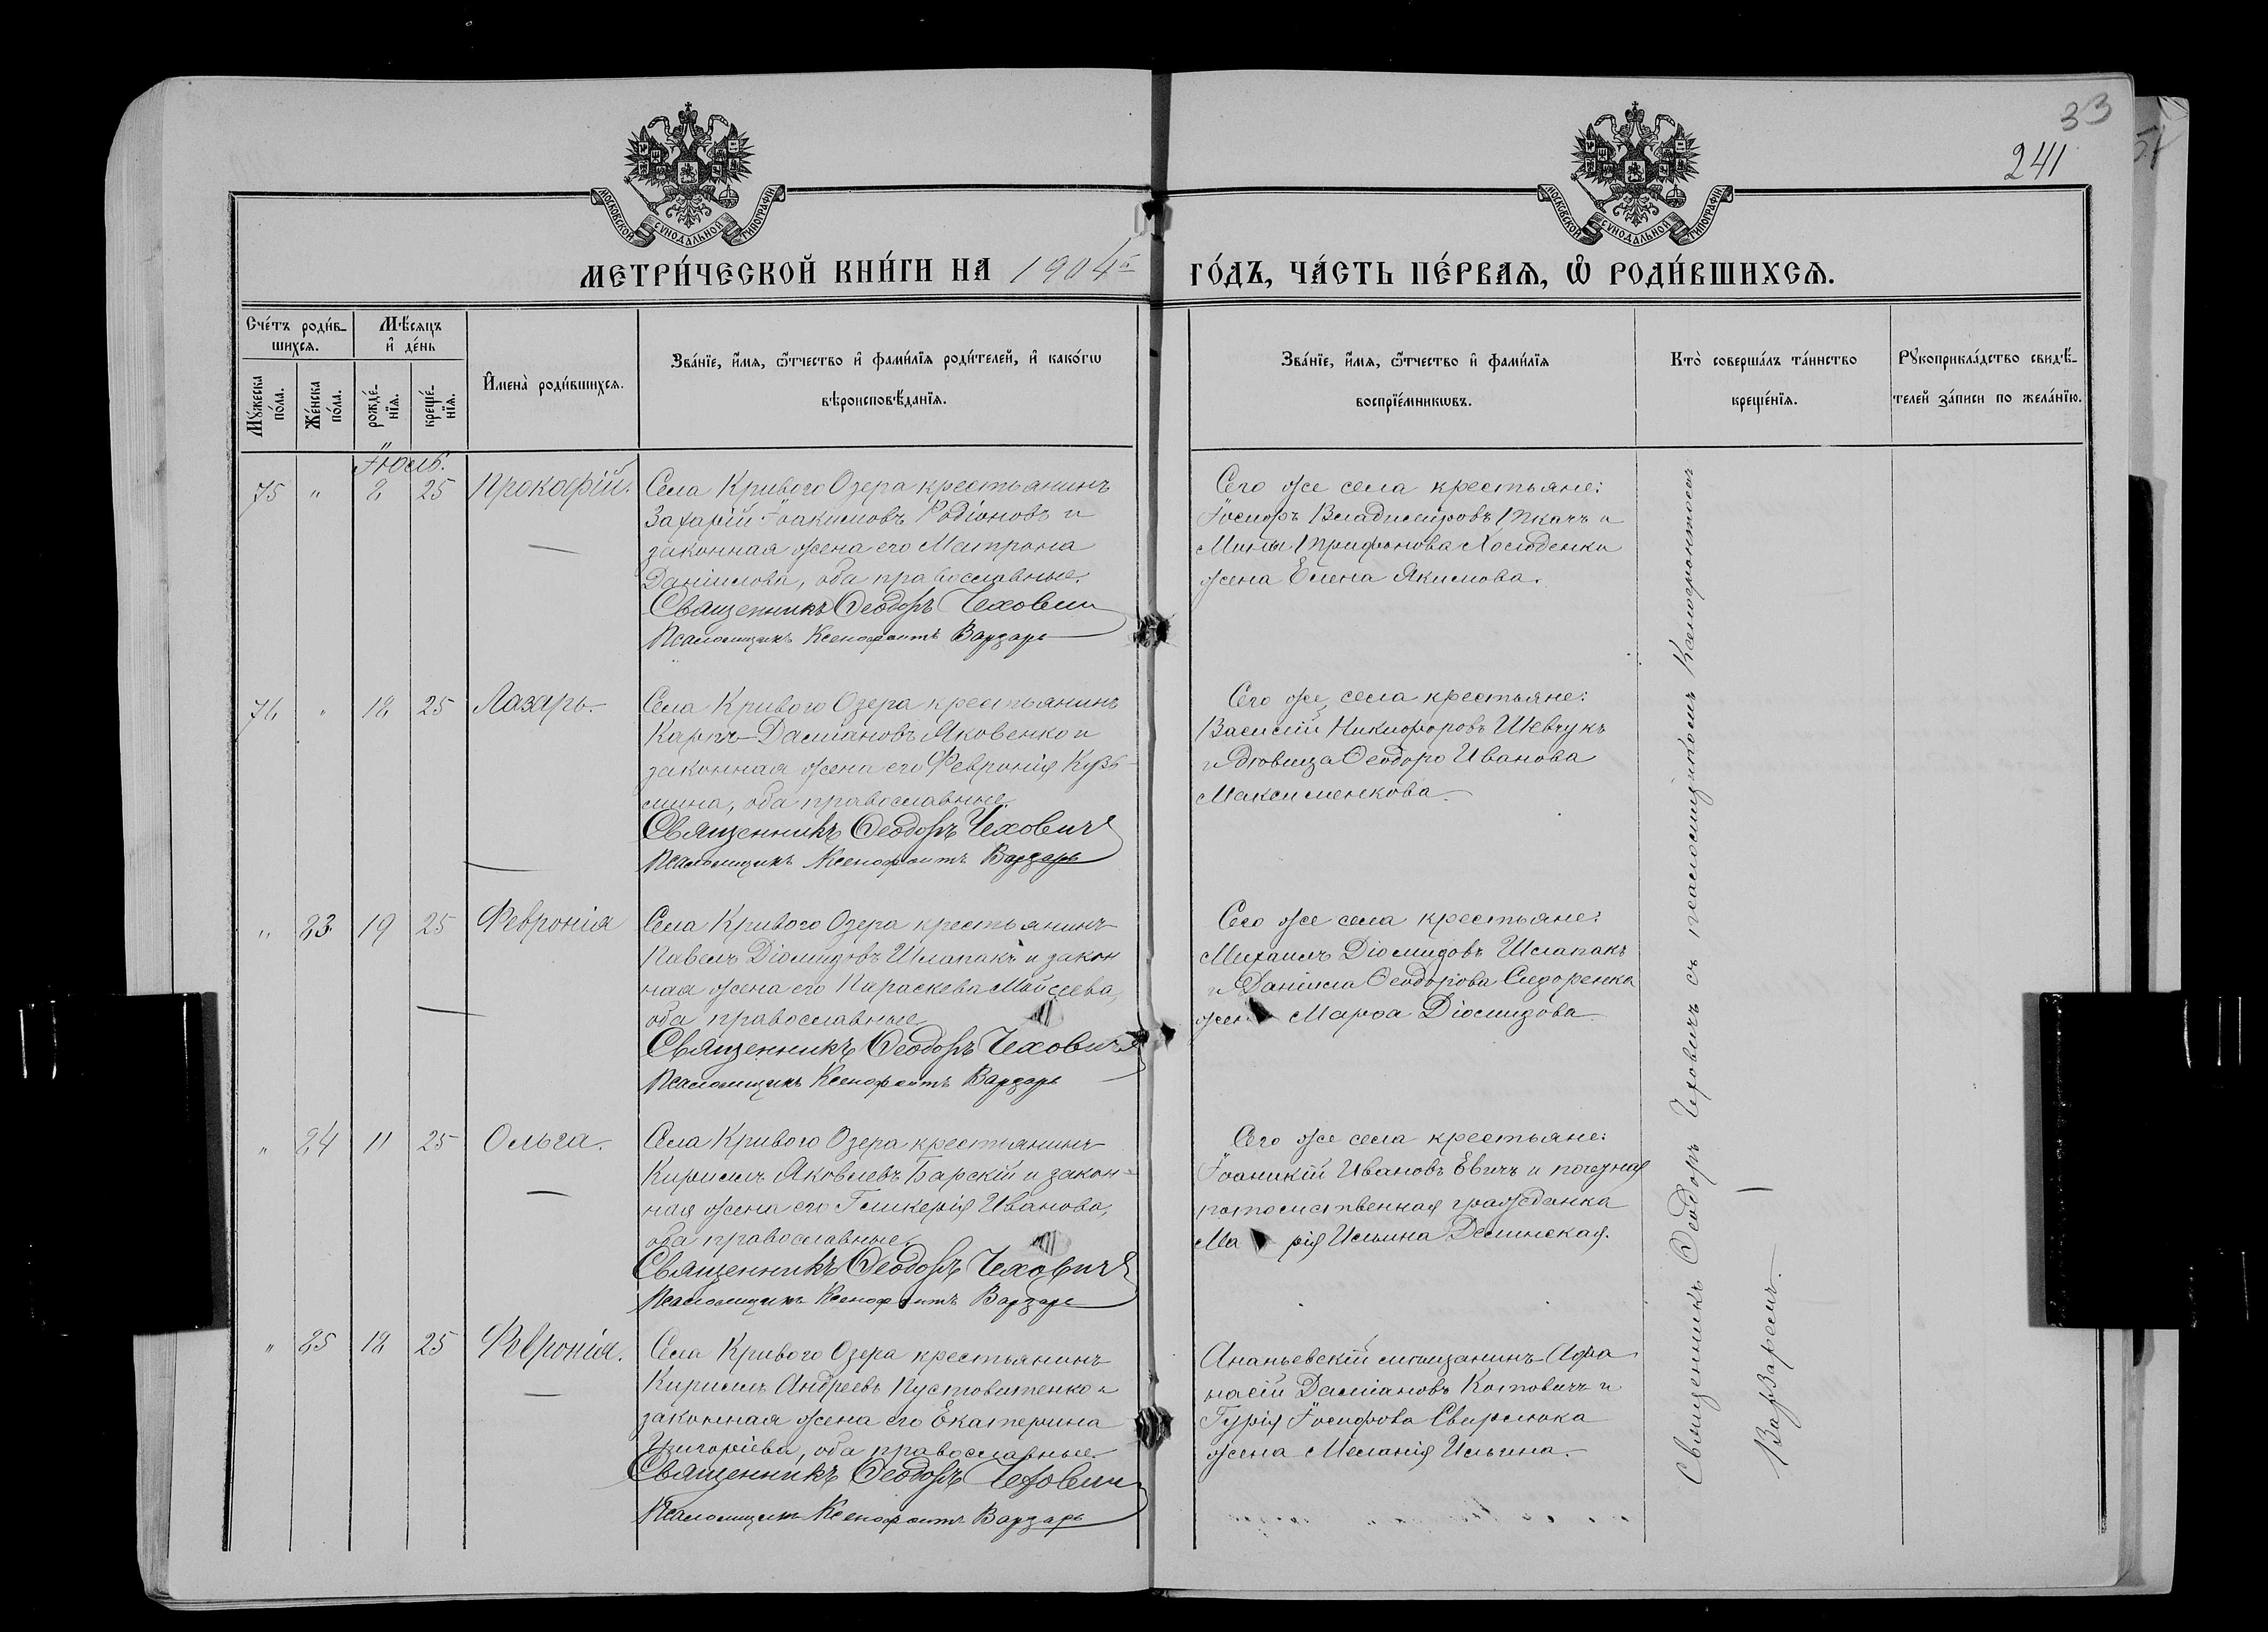 33
241
51
МОСКОВСКОЙ СѴНОДАЛЬНОЙ ТИПОГРАФІИ
МОСКОВСКОЙ СѴНОДАЛЬНОЙ ТИПОГРАФІИ
МЕТРИ́ЧЕСКОЙ КНИ́ГИ НА 1904й ГО́ДЪ, ЧА́СТЬ ПЕ́РВАѦ, Ѡ҆ РОДИ́ВШИХСѦ.
Сче́тъ роди́в-
шихсѧ.
Мѣ́сѧцъ
и҆ де́нь
Мꙋ́жеска
по́ла.
Же́нска
по́ла.
рожде́-
нїѧ.
креще́-
нїѧ.
И҆мена̀ роди́вшихсѧ.
Зва́нїе, и҆́мѧ, ѻ҆́тчество и҆ фами́лїѧ роди́телей, и҆ како́гѡ
вѣроисповѣ́данїѧ.
Зва́нїе, и҆́мѧ, ѻ҆́тчество и҆ фами́лїѧ
воспрїе́мникѡвъ.
Кто̀ соверша́лъ та́инство
креще́нїѧ.
Рꙋкоприкла́дство свидѣ́-
телей за́писи по жела́нїю.
Іюль.
75 " 2 25 Прокофій.
Села Кривого Озера крестьянинъ
Захарій Іоакимовъ Родіоновъ и
законная жена его Матрона
Даніилова, оба православные.
Священникъ Ѳеодоръ Чеховичъ
Псаломщикъ Ксенофонтъ Варзарь
Сего же села крестьяне:
Іосифъ Владимировъ Ткачъ и
Мины Трифонова Холоденки
жена Елена Якимова.
76 " 12 25 Лазарь.
Села Кривого Озера крестьянинъ
Карпъ Даміановъ Яковенко и
законная жена его Февронія Кузь-
мина, оба православные.
Священникъ Ѳеодоръ Чеховичъ
Псаломщикъ Ксенофонтъ Варзарь
Сего же села крестьяне:
Василій Никифоровъ Шевчукъ
и дѣвица Ѳеодора Иванова
Максименкова.
" 23 19 25 Февронія
Села Кривого Озера крестьянинъ
Павелъ Діомидовъ Шлапакъ и закон
ная жена его Параскева Мойсеева,
оба православные.
Священникъ Ѳеодоръ Чеховичъ
Псаломщикъ Ксенофонтъ Варзарь
Сего же села крестьяне:
Михаилъ Діомидовъ Шлапакъ
и Даніила Ѳеодорова Сидоренка
жена Марѳа Діомидова.
" 24 11 25 Ольга.
Села Кривого Озера крестьянинъ
Кириллъ Яковлевъ Барскій и закон-
ная жена его Гликерія Иванова,
оба православные.
Священникъ Ѳеодоръ Чеховичъ
Псаломщикъ Ксенофонтъ Варзарь
Сего же села крестьяне:
Іоаникій Ивановъ Евичъ и почезная
потомственная гражданка
Марія Ильина Делинская.
" 25 12 25 Февронія.
Села Кривого Озера крестьянинъ
Кириллъ Андреевъ Пустовитенко и
законная жена его Екатерина
Григоріева, оба православные.
Священникъ Ѳеодоръ Чеховичъ
Псаломщикъ Ксенофонтъ Варзарь
Ананьевскій мѣщанинъ Афа
насій Даміановъ Котовичъ и
Гурія Іосифова Свирелюка
жена Меланія Ильина.
Священникъ Ѳеодоръ Чеховичъ съ псаломщикомъ Ксенофонтомъ
Варзаремъ.